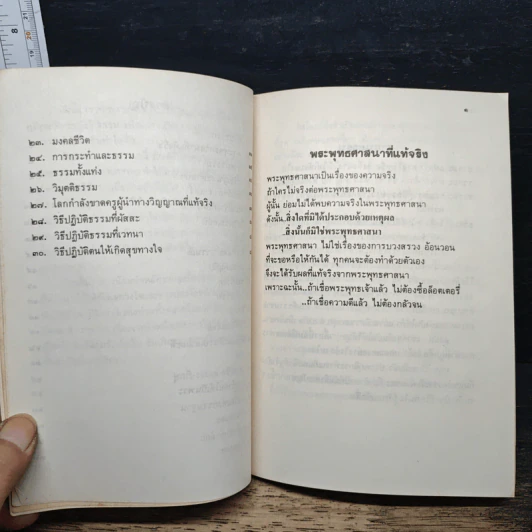 ๒๓. มงคลชีวิต
๒๔. การกระทำและธรรม
๒๕. ธรรมทั้งแท่ง
๒๖. วิมุตติธรรม
๒๗. โลกกำลังขาดครูผู้นำทางวิญญาณที่แท้จริง
๒๘. วิธีปฏิบัติธรรมที่ผัสสะ
๒๙. วิธีปฏิบัติธรรมที่เวทนา
๓๐. วิธีปฏิบัติตนให้เกิดสุขทางใจ
๑
พระพุทธศาสนาที่แท้จริง
พระพุทธศาสนาเป็นเรื่องของความจริง
ถ้าใครไม่จริงต่อพระพุทธศาสนา
ผู้นั้น ย่อมไม่ได้พบความจริงในพระพุทธศาสนา
ดังนั้น..สิ่งใดที่มิได้ประกอบด้วยเหตุผล
..สิ่งนั้นก็มิใช่พระพุทธศาสนา
พระพุทธศาสนา ไม่ใช่เรื่องของการบวงสรวง อ้อนวอน
ที่จะขอหรือให้กันได้ ทุกคนจะต้องทำด้วยตัวเอง
จึงจะได้รับผลที่แท้จริงจากพระพุทธศาสนา
เพราะฉะนั้น..ถ้าเชื่อพระพุทธเจ้าแล้ว ไม่ต้องซื้อล็อตเตอรี่
..ถ้าเชื่อความดีแล้ว ไม่ต้องกลัวจน